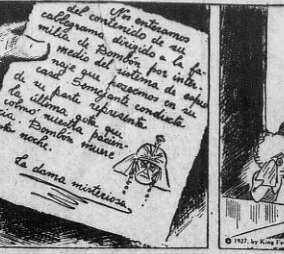 Nos enteramos
del contenido de su
cablegrama dirigido a la fa-
milia de Dombón por inter-
medio del sistema de espio-
naje que poseemos en su
casa. Semejante conducta
de su parte representa
la última gota que
colmó nuestra pacien-
cia. Dombón muere
esta noche.
La dama misteriosa
© 1927, by King Fe